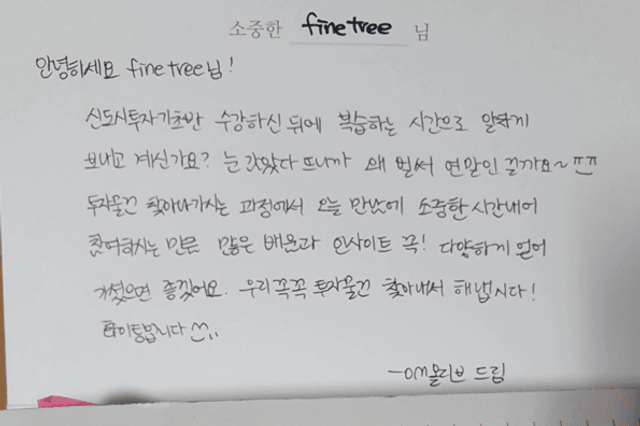 소중한 fine tree 님
안녕하세요 fine tree님!
신도시투자기초반 수강하신 뒤에 복습하는 시간으로 알차게
보내고 계신가요? 눈 감았다 뜨니까 왜 벌써 연말인 걸까요~ㅠㅠ
투자물건 찾아나가시는 과정에서 오늘 만남에 소중한 시간내어
참여하시는 만큼 많은 배움과 인사이트 꼭! 다양하게 얻어
가셨으면 좋겠어요. 우리 꼭꼭 투자물건 찾아내서 해냅시다!
화이팅입니다
드림